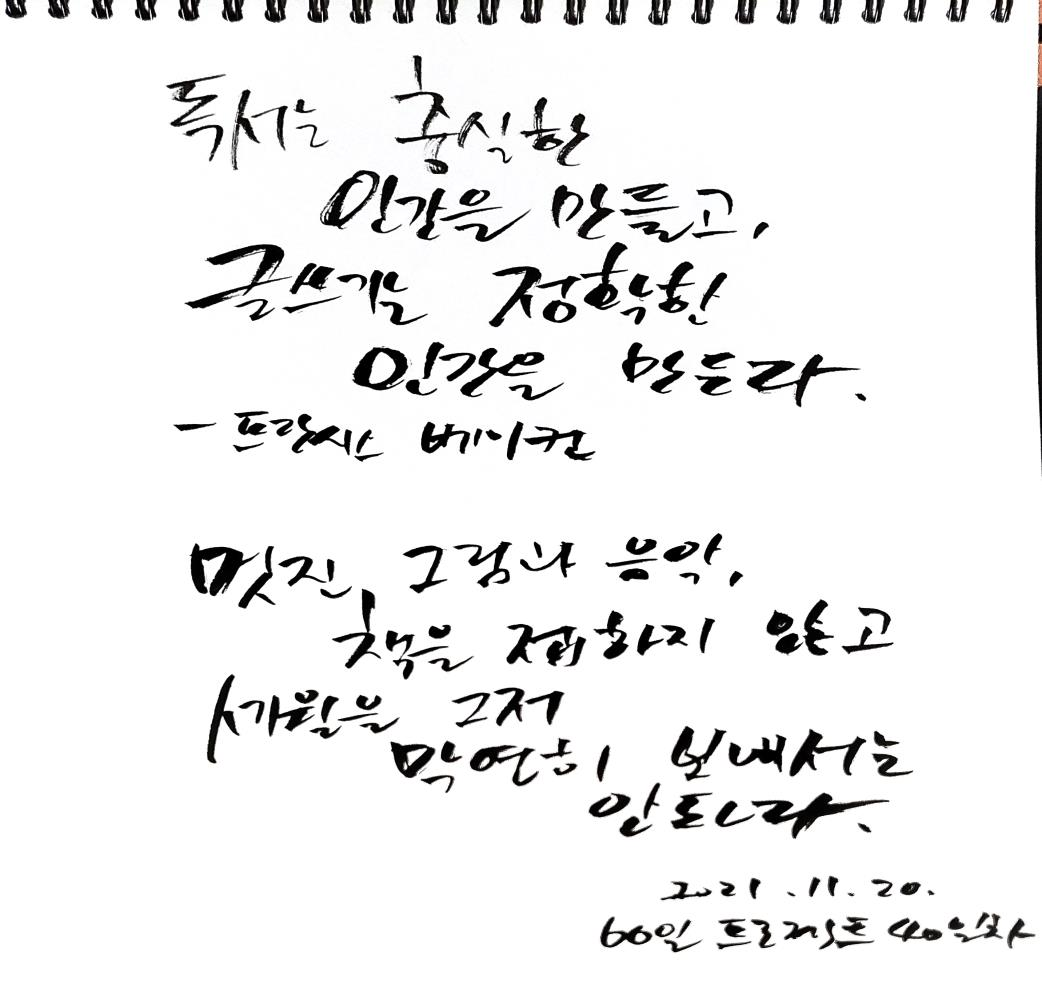 독서는 충실한
인간을 만들고,
글쓰기는 정확한
인간을 만든다.
- 프랑시스 베이컨
멋진 그림과 음악,
책을 접하지 않고
세월을 그저
막연히 보내서는
안된다.
2021.11.20.
60일 프로젝트 40일차